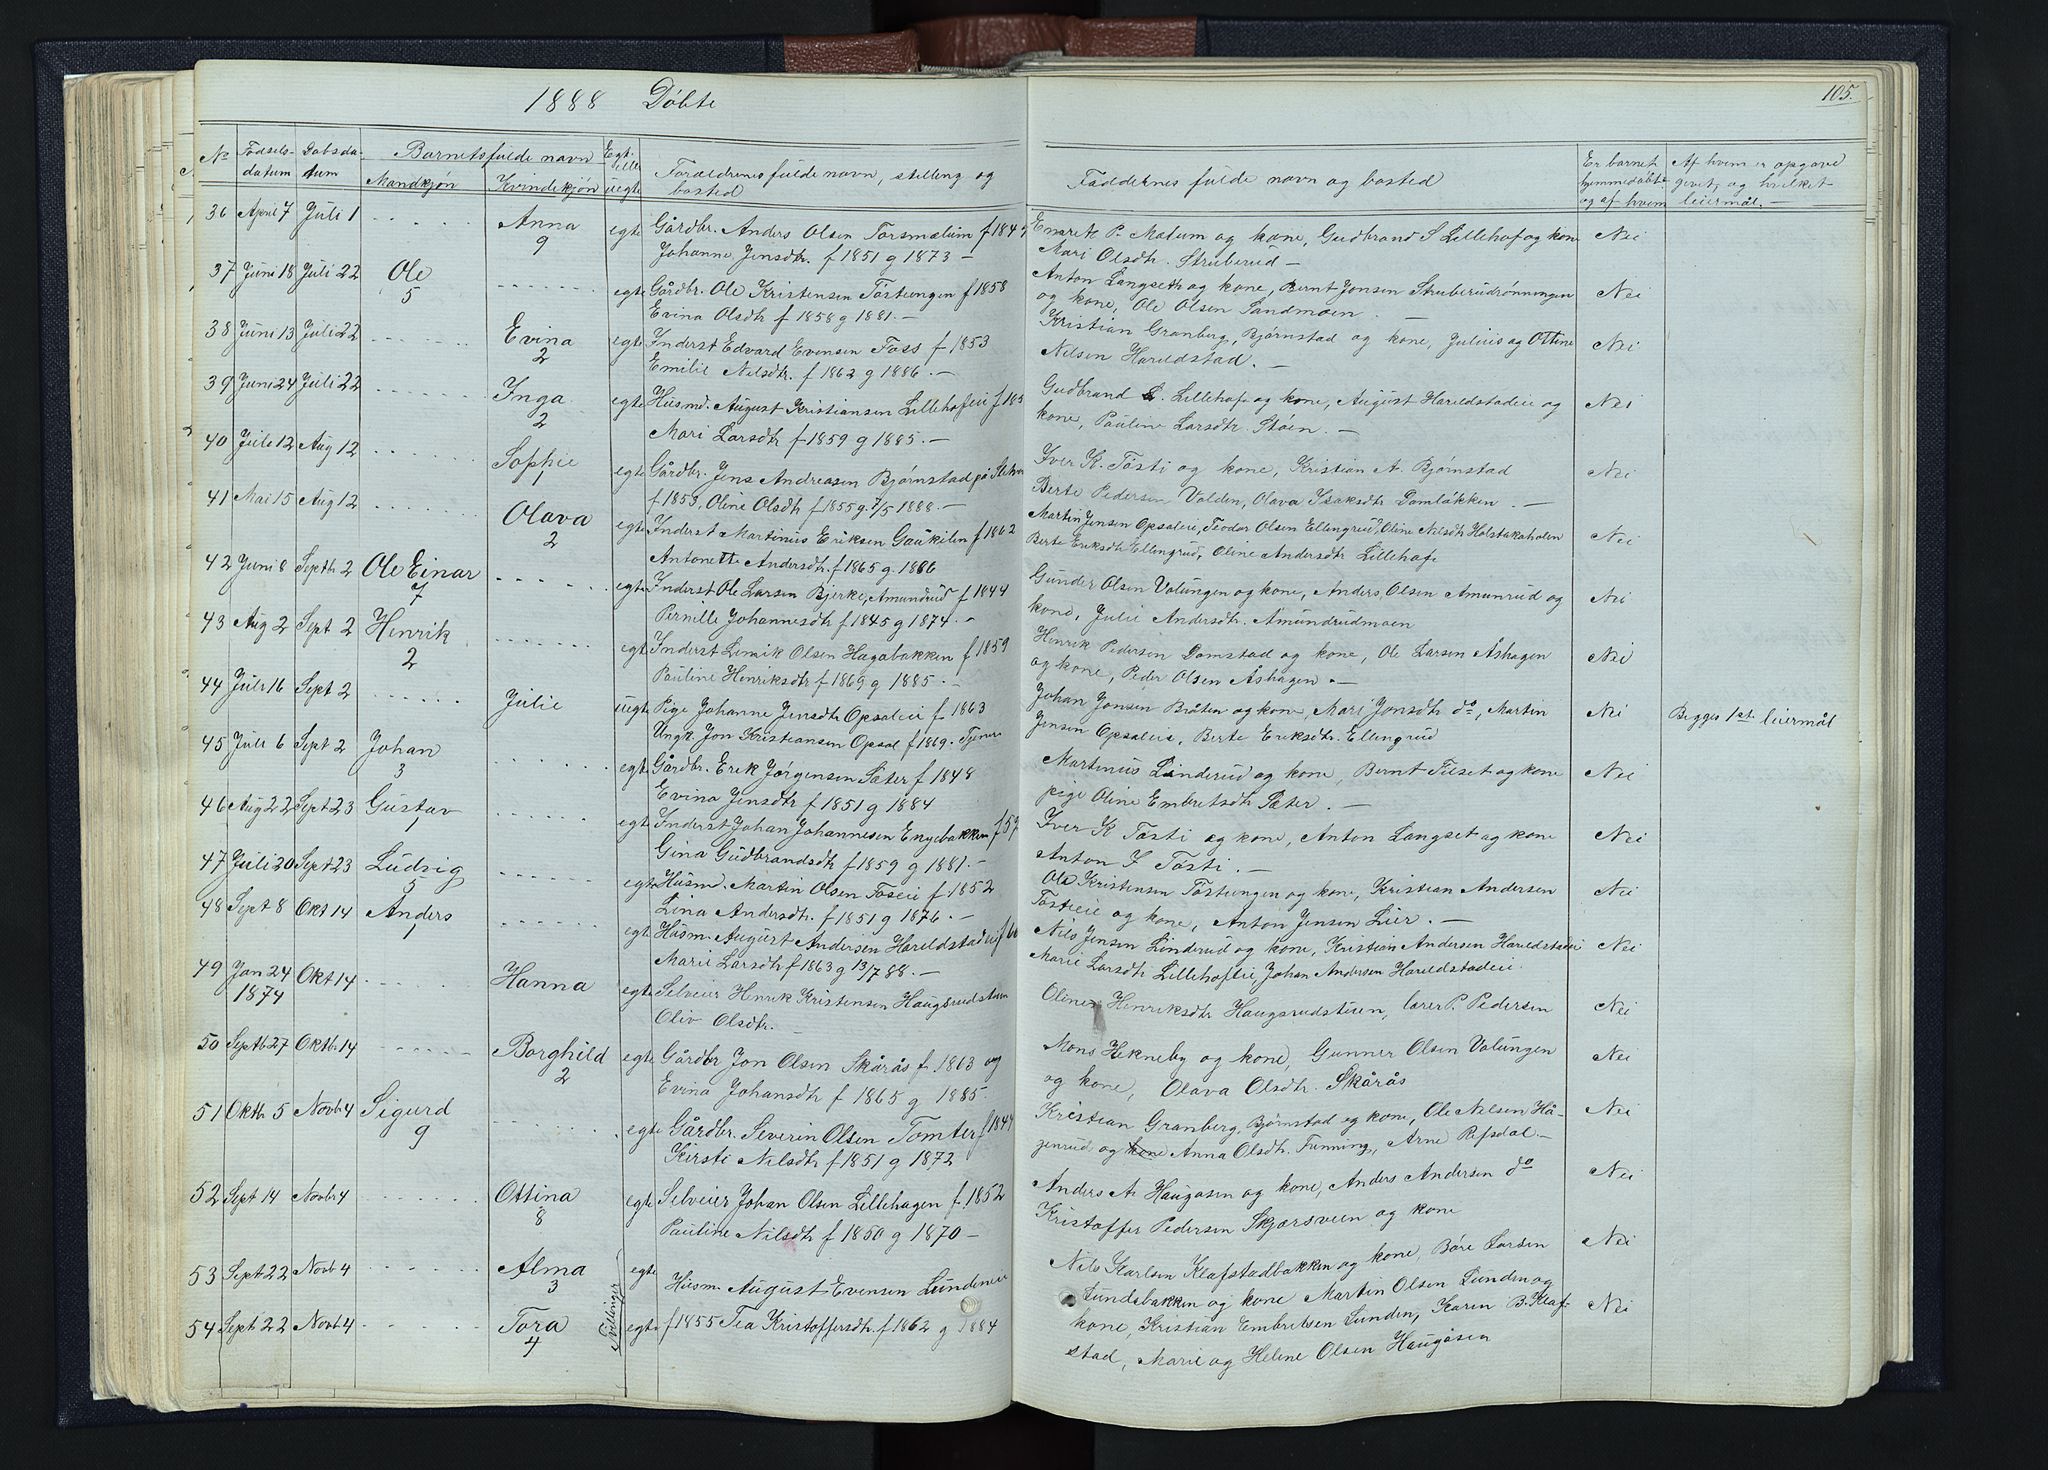 1888 Döbte
105.
No Födsels- Dabsda- Barnets fulde navn Egt. Foraldrenes fulde navn, stilling og Faddernes fulde navn og bosted Er barnet Af hvem er opgave
datum tum Mandkjön Kvindekjön uegte bosted hjemmedöbt givet, og hvilket
og af hvem leiermål. —
36 April 7 Juli 1 Anna egte Gårdbr. Anders Olsen Torsmælum f 184 P. Mælum og kone, Gudbrand S Lillehof og kone Nei
9 Johanne Jensdtr. f 1851 g 1873 — Mari Olsdtr. Struberud —
37 Juni 18 Juli 22 Ole egte Gårdbr. Ole Kristensen Töstungen f 1858 Anton Langseth og kone, Bernt Jonsen Struberudrönningen Nei
5 Evina Olsdtr f 1858 g 1881. — og kone, Ole Olsen Sandmoen. —
38 Juni 13 Juli 22 Evina egte Inderst Edvard Evensen Foss f 1853 Kristian Granberg, Bjørnstad og kone, Julius og Ottine Nei
2 Emilie Nilsdtr. f 1862 g 1886. — Nilsen Hareldstad. —
39 Juni 24 Juli 22 Inga egte Husmd. August Kristiansen Lillehofeie f 185 Gudbrand S. Lillehof og kone, August Hareldstadeie og Nei
2 Mari Larsdtr f 1859 g 1885. — kone, Pauline Larsdtr. Stöen. —
40 Juli 12 Aug 12 Sophie egte Gårdbr. Jens Andreasen Bjørnstad på Iver K. Tösti og kone, Kristian A. Bjørnstad Nei
f 1853, Oline Olsdtr f 1855 g 7/5 1888. — Berte Pedersen Volden, Olava Isaksdtr Damlökken. —
41 Mai 15 Aug 12 Olava egte Inderst Martinus Eriksen Gaukilen f 1862 Martin Jensen Opsaleie, Teodor Olsen Ellengrud, Oline Nilsdtr Holstakaholen Nei
2 Antonette Andersdtr. f 1865 g. 1886 Berte Eriksdtr Ellengrud, Oline Andersdtr Lillehof
42 Juni 8 Septbr 2 Ole Einar egte Inderst Ole Larsen Bjerke, Amundrud f 1844 Gunder Olsen Volungen og kone, Anders Olsen Amunrud og Nei
7 Pernille Johannesdtr f 1845 g 1874. — kone, Julie Andersdtr. Amundrudmoen
43 Aug 2 Sept 2 Henrik egte Inderst Lemik Olsen Hagabakken f 1859 Henrik Pedersen Damstad og kone, Ole Larsen Åshagen Nei
2 Pauline Henriksdtr f 1869 g 1885. — og kone, Peder Olsen Åshagen. —
44 Juli 16 Sept 2 Julie uegte Pige Johanne Jensdtr Opsaleie f 1863 Johan Jonsen Bråten og kone, Mari Jonsdtr do, Martin Nei Begges 1st. leiermål
Ungk. Jon Kristiansen Opsal f 1869. Tjener Jensen Opsaleie, Berte Eriksdtr. Ellengrud
45 Juli 6 Sept 2 Johan egte Gårdbr. Erik Jörgensen Sæter f 1848 Martinus Linderud og kone, Bernt Filset og kone Nei
3 Evina Jensdtr f 1851 g 1884 pige Oline Embretsdtr Sæter. —
46 Aug 22 Sept 23 Gustav egte Inderst Johan Johannesen Engebakken f 57 Iver K Tösti og kone, Anton Langset og kone Nei
1 Gina Gudbrandsdtr f 1859 g 1881. — Anton I Tösti. —
47 Juli 20 Sept 23 Ludvig egte Husmd. Martin Olsen Foseie f 1852 Ole Kristensen Töstungen og kone, Kristian Andersen Nei
5 Lina Andersdtr. f 1851 g 1876. — Tösteie og kone, Anton Jensen Lier. —
48 Sept 8 Okt 14 Anders egte Husm. August Andersen Hareldstadeie f 60 Nils Jensen Linderud og kone, Kristian Andersen Hareldstadeie Nei
1 Marie Larsdtr f 1863 g 13/7 88. — Marie Larsdtr Lillehofeie, Johan Andersen Hareldstadeie.
49 Jan 24 Okt 14 Hanna egte Selveier Henrik Kristensen Haugsrudstuen Oline Henriksdtr Haugsrudstuen, lærer P. Pedersen Nei
1874 Oliv Olsdtr. —
50 Septb 27 Oktb 14 Borghild egte Gårdbr Jon Olsen Skårås f. 1863 og Mons Hekneby og kone, Gunner Olsen Volungen Nei
2 Evina Johansdtr f 1865 g 1885. og kone, Olava Olsdtr. Skårås
51 Oktb 5 Novb 4 Sigurd egte Gårdbr. Severin Olsen Tomter f 184 Kristian Granberg, Bjørnstad og kone, Ole Nilsen Hå- Nei
9 Kirsti Nilsdtr f 1851 g 1872 genrud og kone Anna Olsdtr. Funning, Arne Refsdal. —
52 Sept 14 Novbr 4 Ottina egte Selveier Johan Olsen Lillehagen f. 1852 Anders A. Haugåsen og kone, Anders Andersen do Nei
8 Pauline Nilsdtr f 1850 g 1870 — Kristoffer Pedersen Skjærsveen og kone
53 Sept 22 Novb 4 Alma egte Husm. August Evensen Lundeneie Nils Karlsen Klafstadbakken og kone, Böre Larsen Nei
3 Tvillinger Lundsbakken og kone Martin Olsen Lunden og
54 Sept 22 Novb 4 Tora egte f 1855 Tea Kristoffersdtr. f 1862 g 1884 kone, Kristian Embretsen Lunden, Karen B. Klaf- Nei
4 stad, Marie og Helene Olsen Haugåsen